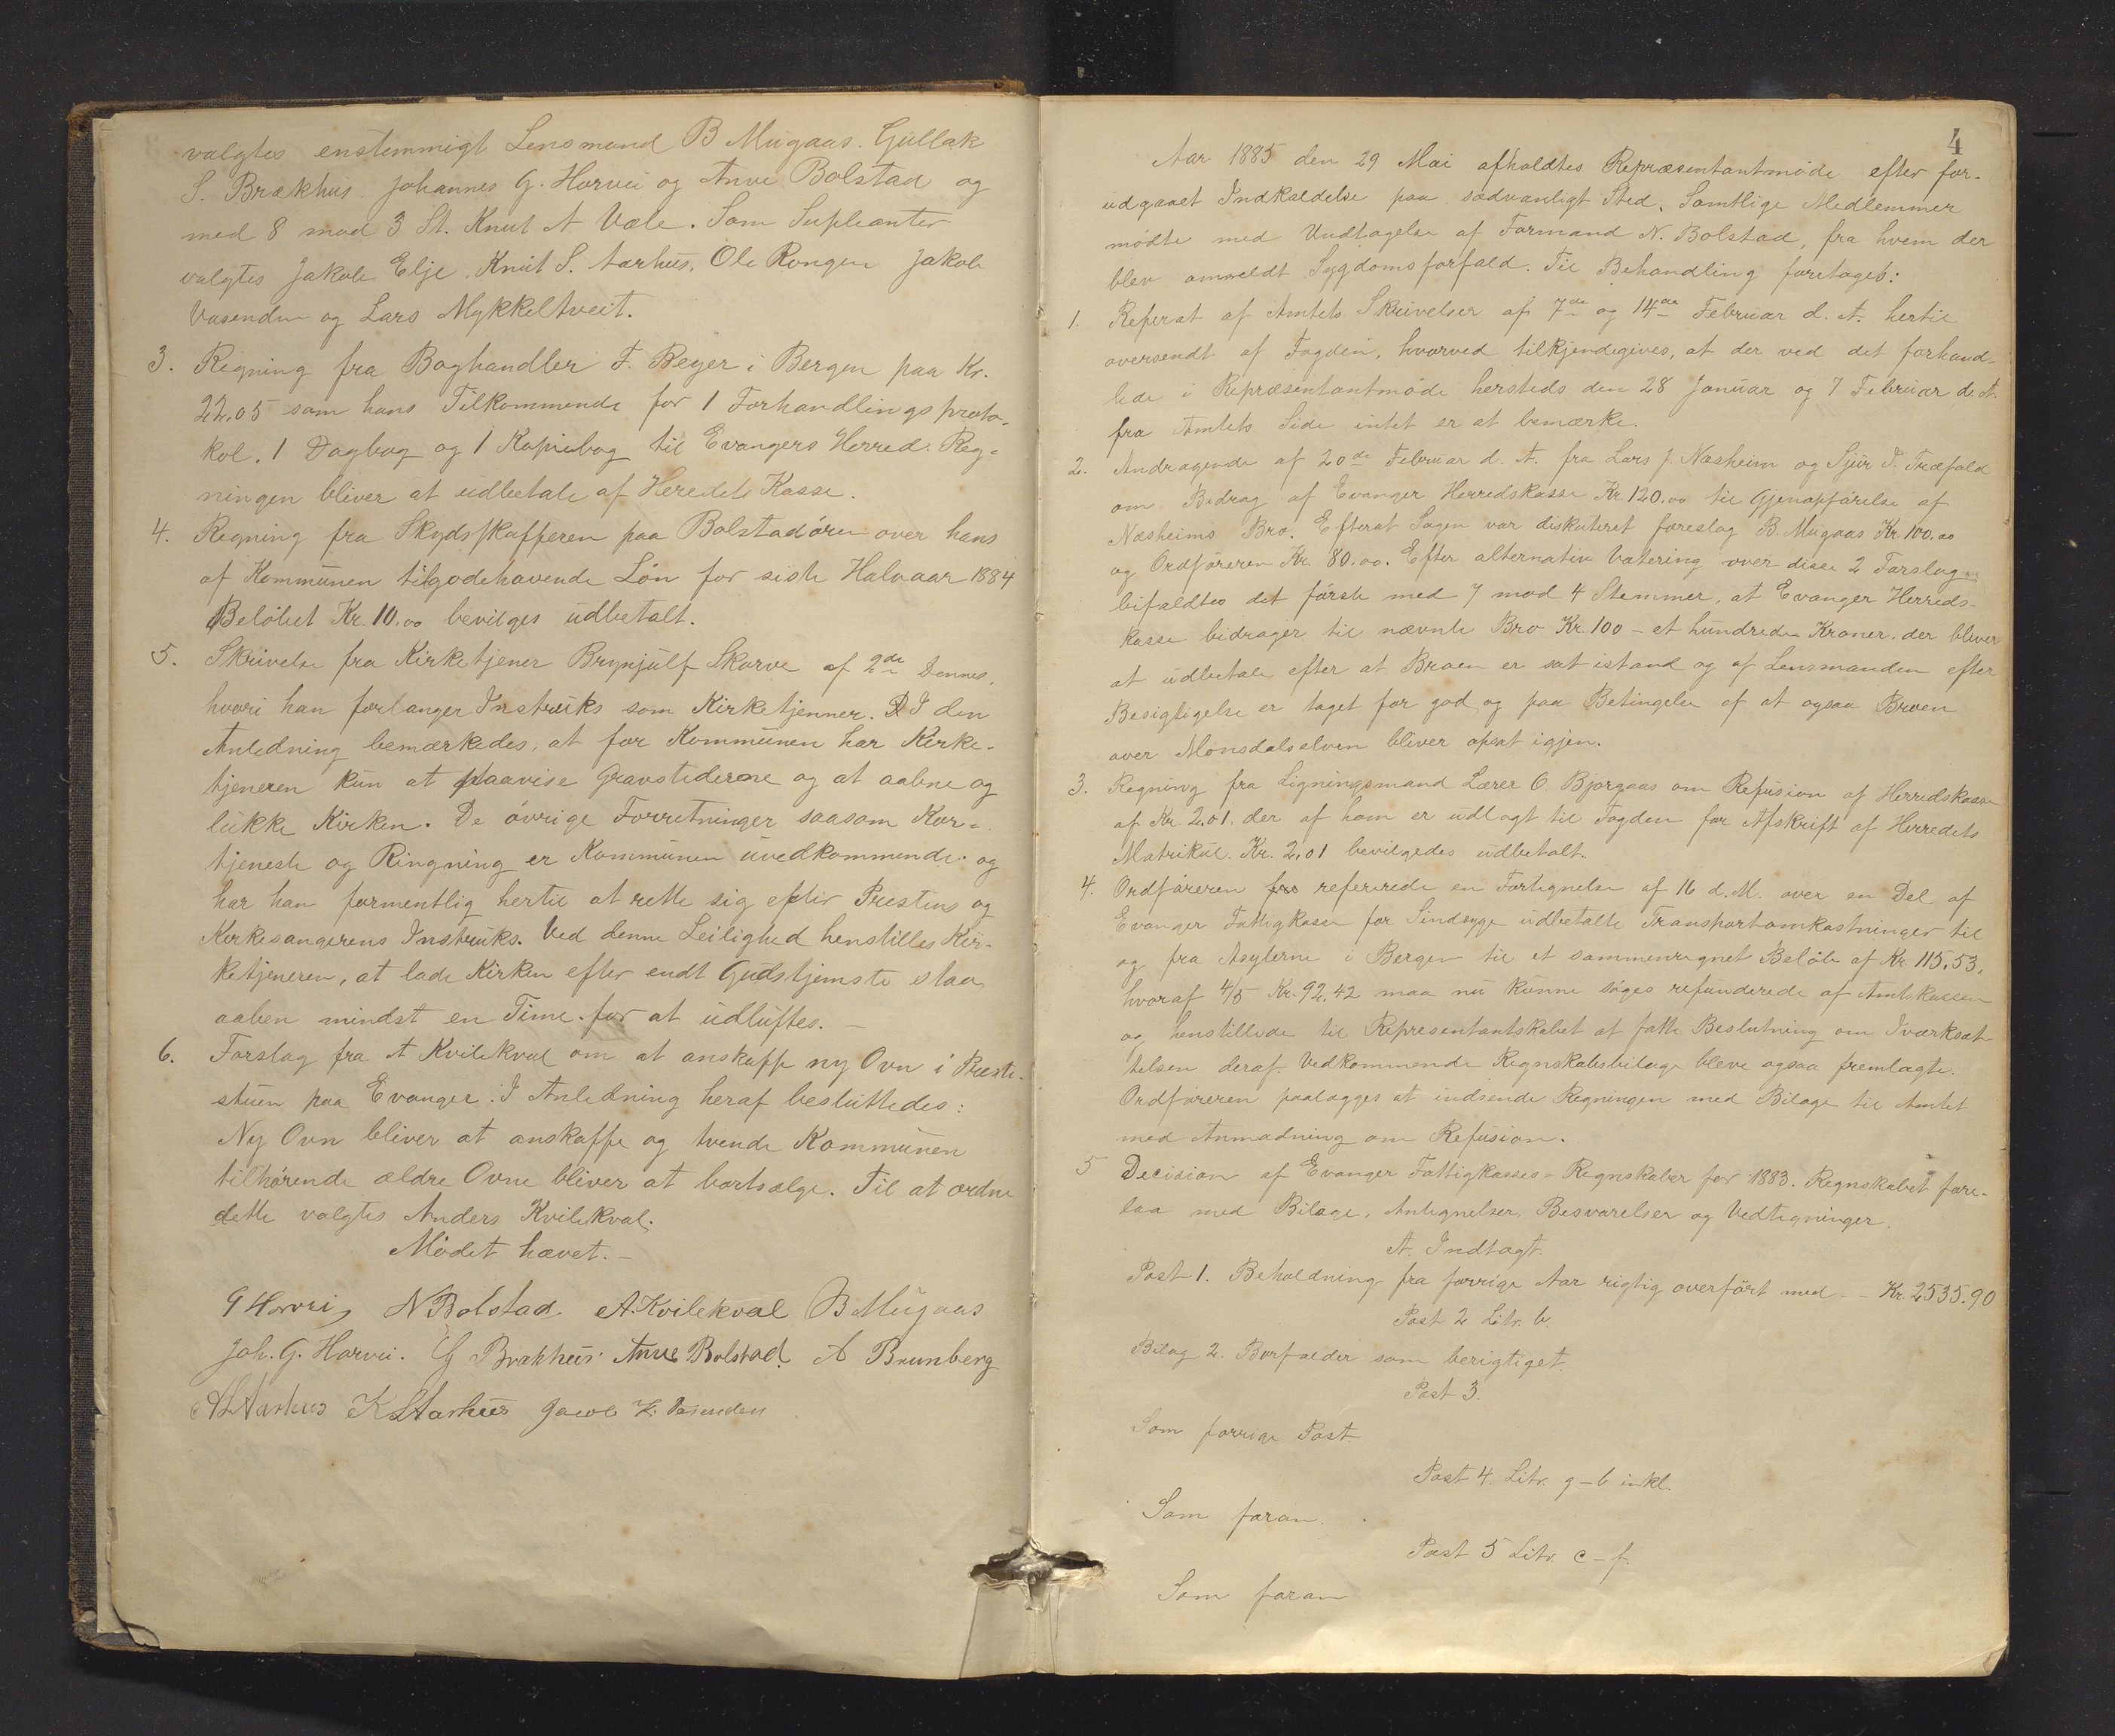 valgtes enstemmigt Lensmand B Mugaas. Gullak
S. Brækhus. Johannes G. Horvei og Anve Bolstad og
med 8 mod 3 St. Knut A Væle. Som Supleanter
valgtes Jakob Elje. Knut S. Aarhus. Ole Rongen Jakob
Vasenden og Lars Mykkeltveit.
3. Regning fra Boghandler F. Beyer i Bergen paa Kr.
22.05 som hans Tilkommende for 1 Forhandlingsproto-
kol. 1 Dagbog og 1 Kopiebog til Evangers Herred. Reg-
ningen bliver at udbetale af Heredets Kasse.
4. Regning fra Skydsskafferen paa Bolstadøren over hans
af Kommunen tilgodehavende Løn for siste Halvaar 1884
Beløbet Kr. 10.00 bevilges udbetalt.
5. Skrivelse fra Kirketjener Brynjulf Skorve af 2de Dennes,
hvori han forlanger Instruks som Kirketjenner. I den
Anledning bemærkedes, at for Kommunen har Kirke-
tjeneren kun at paavise Gravstederne og at aabne og
lukke Kirken. De øvrige Forretninger saasom Kor-
tjeneste og Ringning er Kommunen uvedkommende og
har han formentlig hertil at rette sig efter Prestens og
Kirkesangerens Instruks. Ved denne Leilighed henstilles Kir-
ketjeneren, at lade Kirken efter endt Gudstjeneste staa
aaben mindst en Time for at udluftes. –
6. Forslag fra A Kvilekval om at anskaffe ny Ovn i Præste-
stuen paa Evanger. I Anledning heraf besluttedes:
Ny Ovn bliver at anskaffe og tvende Kommunen
tilhørende ældre Ovne bliver at bortsælge. Til at ordne
dette valgtes Anders Kvilekval.
Mødet hævet. –
G Horvei N Bolstad. A. Kvilekval B Mugaas
Joh. G. Horvei. G Brækhus. Anve Bolstad. A Brunberg
A Aarhus K S Aarhus Jacob K. Vasenden
4
Aar 1885 den 29 Mai afholdtes Repræsentantmøde efter for-
udgaaet Indkaldelse paa sædvanligt Sted. Samtlige Medlemmer
mødte med Undtagelse af Formand N. Bolstad, fra hvem der
blev anmeldt Sygdomsforfald. Til Behandling foretoges:
1. Referat af Amtets Skrivelser af 7de og 14de Februar d. A. hertil
oversendt af Fogden, hvorved tilkjendegives, at der ved det forhand-
lede i Repræsentantmøde hersteds den 28 Januar og 7 Februar d. A.
fra Amtets Side intet er at bemærke.
2. Andragende af 20de Februar d. A. fra Lars J. Næsheim og Sjur I. Træfald
om Bidrag af Evanger Herredskasse Kr. 120.00 til Gjenopførelse af
Næsheims Bro. Efterat Sagen var diskuteret foreslog B. Mugaas Kr. 100.00
og Ordføreren Kr. 80.00. Efter alternativ Votering over disse 2 Forslag
bifaldtes det første med 7 mod 4 Stemmer, at Evanger Herreds-
kasse bidrager til nævnte Bro Kr 100 – et hundrede Kroner. der bliver
at udbetale efter at Broen er sat istand og af Lensmanden efter
Besigtigelse er taget for god og paa Betingelse af at ogsaa Broen
over Mønsdalselven bliver opsat igjen.
3. Regning fra Ligningsmand Lærer O Bjørgaas om Refusion af Herredskassen
af Kr. 2.01. der af ham er udlagt til Fogden for Afskrift af Herredets
Matrikul. Kr. 2.01 bevilgedes udbetalt.
4. Ordføreren refererede en Fortegnelse af 16 d. M. over en Del af
Evanger Fattigkasse for Sindsyge udbetalte Transportomkostninger til
og fra Asylerne i Bergen til et sammenregnet Beløb af Kr. 115.53,
hvoraf 4/5 Kr. 92.42 maa nu kunne søges refunderede af Amtskassen
og henstillede til Representantskabet at fatte Beslutning om Iværksæt-
telsen deraf. Vedkommende Regnskabsbilage bleve ogsaa fremlagte.
Ordføreren paalægges at indsende Regningen med Bilage til Amtet
med Anmodning om Refusion.
5 Decision af Evanger Fattigkasses-Regnskaber for 1883. Regnskabet fore-
laa med Bilage, Antegnelser, Besvarelser og Vedtegninger.
A. Indtægt.
Post 1. Beholdning fra forrige Aar rigtig overført med – – Kr. 2535.90
Post 2 Litr. b.
Bilag 2. Bortfalder som berigtiget.
Post 3.
Som forrige Post.
Post 4. Litr. g – b inkl.
Som foran.
Post 5 Litr. c – f.
Som foran